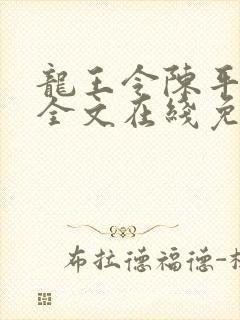 龍王令陳平
全文在綫免
布拉德福德-杜